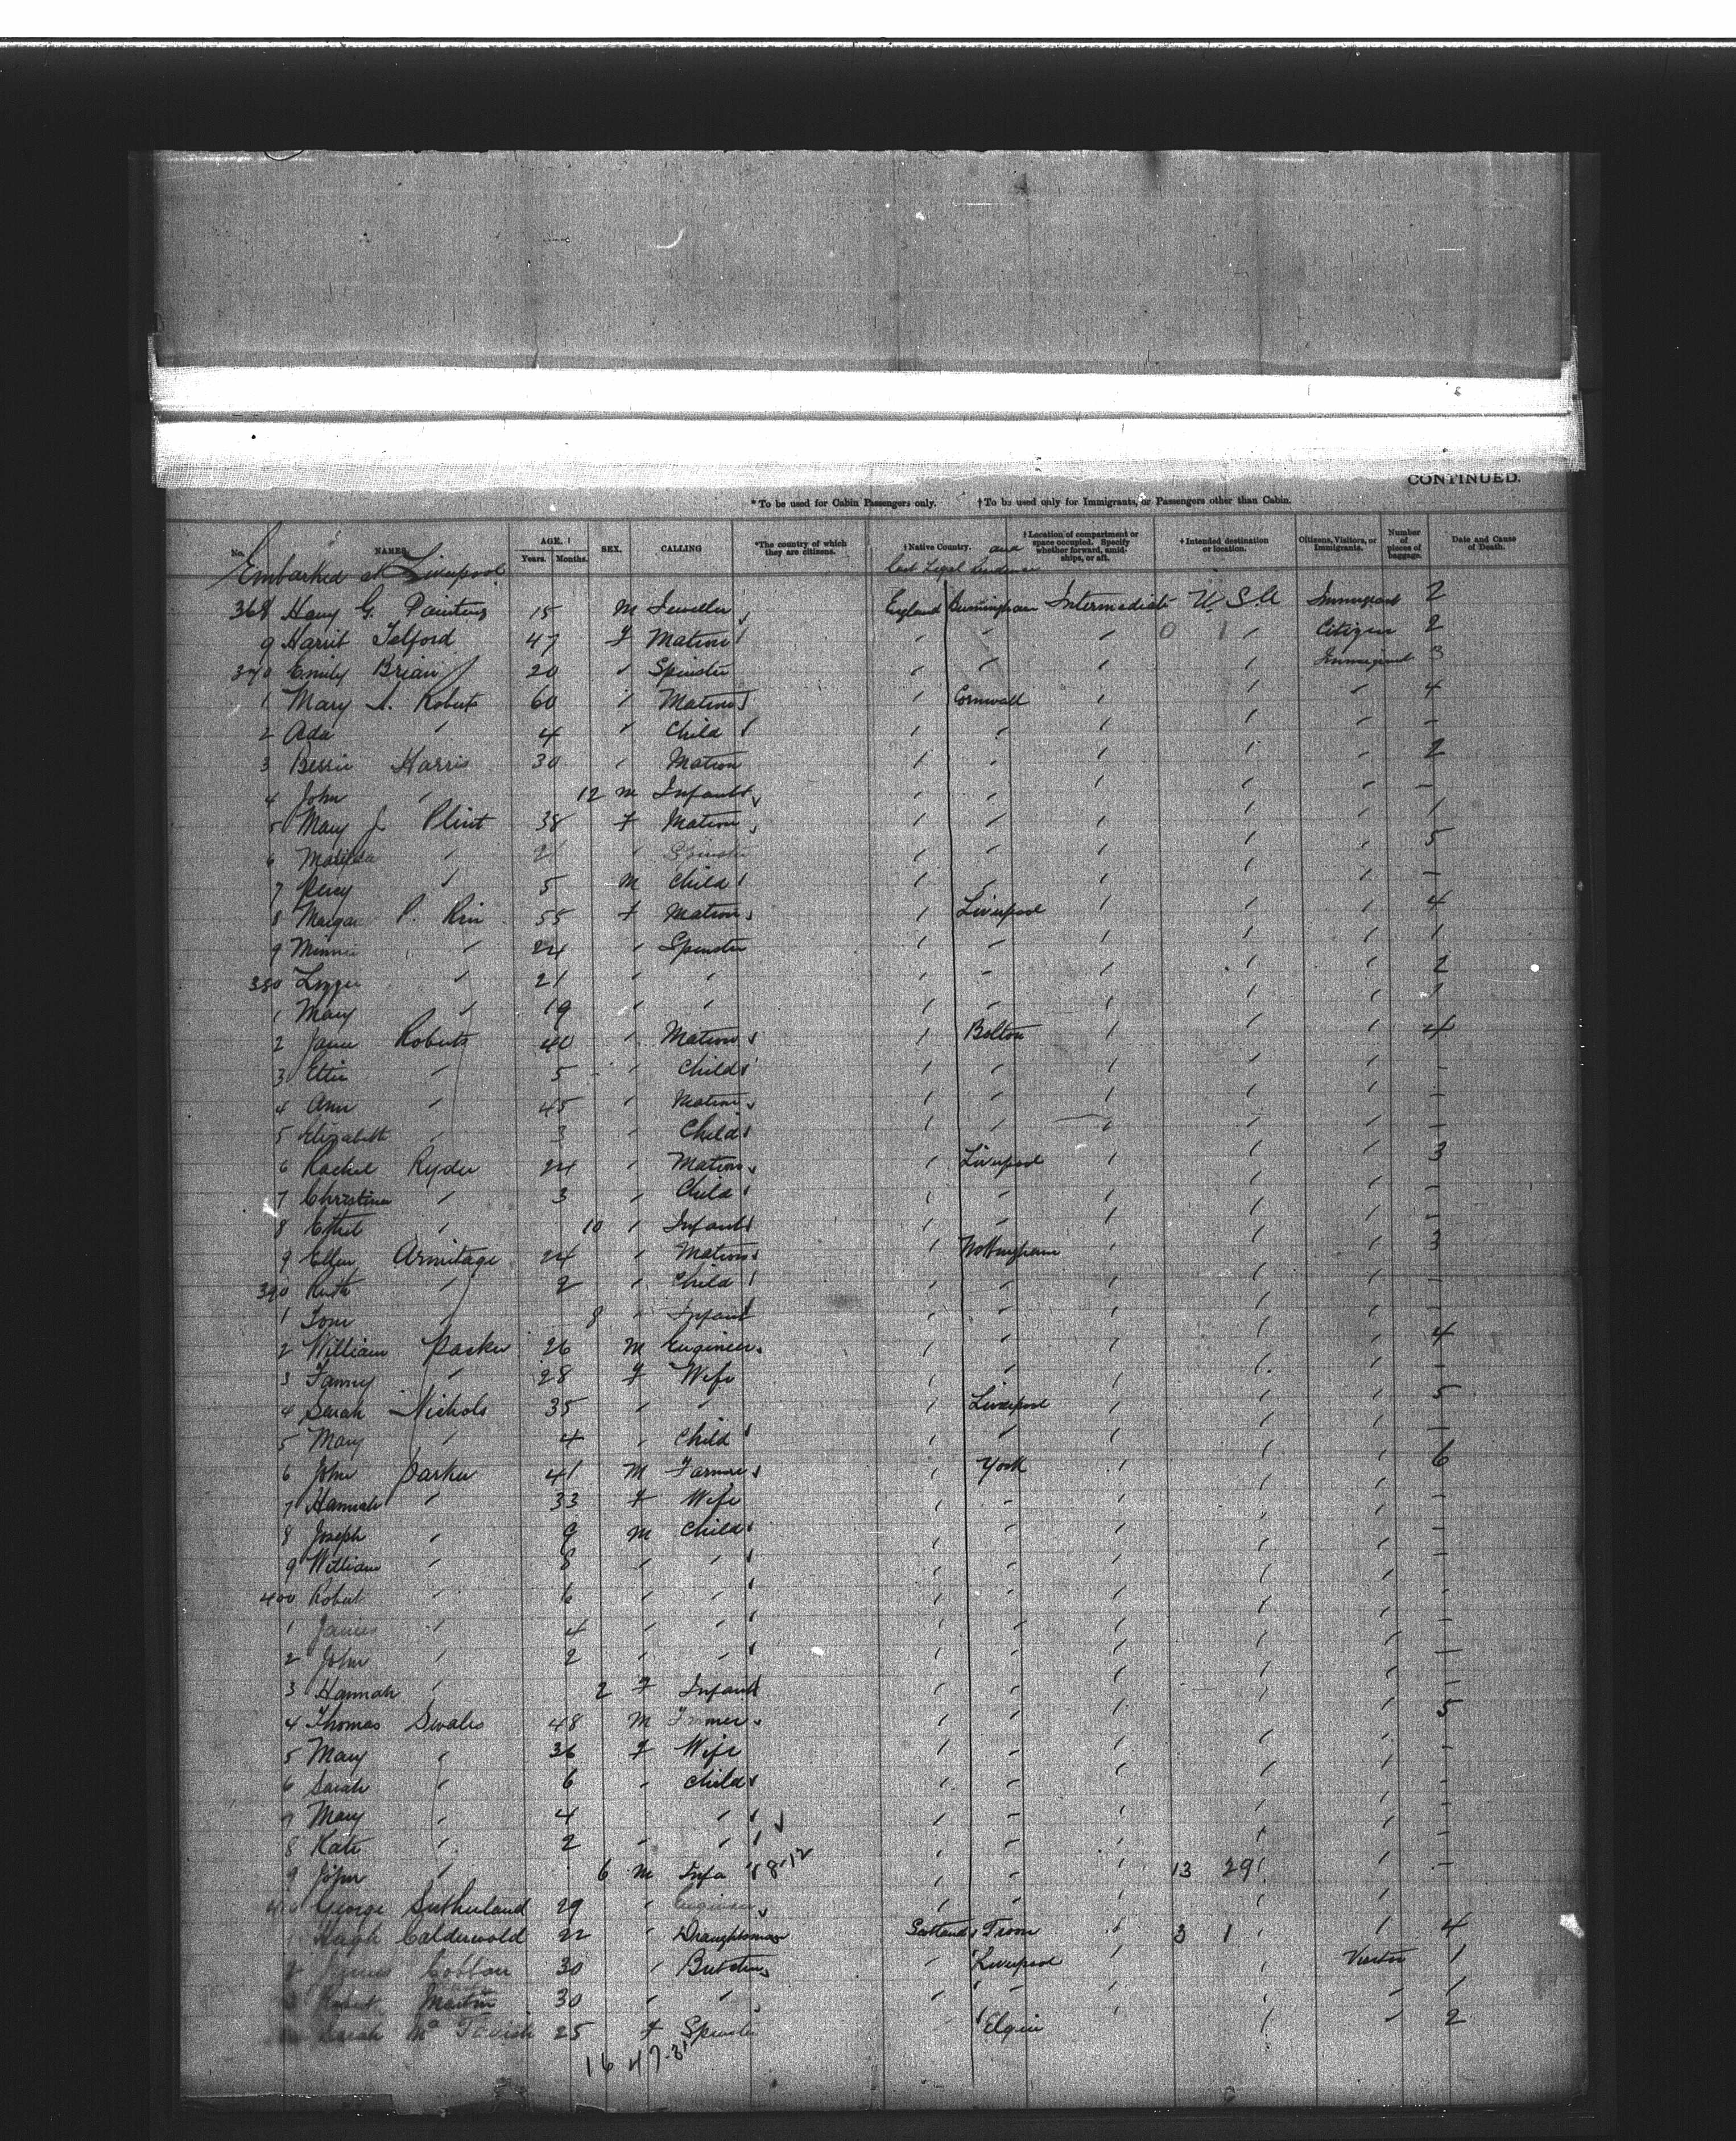 CONTINUED.
* To be used for Cabin Passengers only. † To be used only for Immigrants, or Passengers other than Cabin.
No. NAMES. AGE. Years. Months. SEX. CALLING *The country of which they are citizens. †Native Country. and Last Legal Residence †Location of compartment or space occupied. Specify whether forward, amidships, or aft. †Intended destination or location. Citizens, Visitors, or Immigrants. Number of pieces of baggage. Date and Cause of Death.
Embarked at Liverpool
368 Harry G. 15 M Jeweller England Birmingham Intermediate U.S.A Immigrant 2
9 Harrit Telford 47 F Matron " " " 0 1 " Citizen 2
370 Emily Brian 20 " Spinster " " " " Immigrant 3
1 Mary A. Roberts 60 " Matron " Cornwall " " " 4
2 Ada " 4 " Child " " " " " -
3 Bessie Harris 30 " Matron " " " " " 2
4 John " 12 M Infant " " " " " -
5 Mary J Plint 38 F Matron " " " " " 1
6 Matilda " 21 " Spinster " " " " " 5
7 Percy " 5 M Child " " " " " -
8 P. 55 F Matron " Liverpool " " " 4
9 Minnie " 24 " Spinster " " " " " 1
380 Lizzie " 21 " " " " " " " 2
1 Mary " 19 " " " " " " " 1
2 Jane Roberts 40 " Matron " Bolton " " " 4
3 Ettie " 5 " Child " " " " " -
4 Ann " 45 " Matron " " " " " -
5 Elizabeth " 3 " Child " " " " " -
6 Rachel Ryder 24 " Matron " Liverpool " " " 3
7 Christina " 3 " Child " " " " " -
8 Ethel " 10 " Infant " " " " " -
9 Ellen Armitage 24 " Matron " Nottingham " " " 3
390 Ruth " 2 " Child " " " " " -
1 Tom " 8 " Infant " " " " " -
2 William Parker 26 M Engineer " " " " " 4
3 Fanny " 28 F Wife " " " " " -
4 Sarah Nichols 35 " " " Liverpool " " " 5
5 Mary " 4 " Child " " " " " -
6 John Parker 41 M Farmer " York " " " 6
7 Hannah " 33 F Wife " " " " " -
8 Joseph " 9 M Child " " " " " -
9 William " 8 " " " " " " " -
400 Robert " 6 " " " " " " " -
1 James " 4 " " " " " " " -
2 John " 2 " " " " " " " -
3 Hannah " 2 F Infant " " " " " -
4 Thomas Swales 48 M Farmer " " " " " 5
5 Mary " 36 F Wife " " " " " -
6 Sarah " 6 " Child " " " " " -
7 Mary " 4 " " " " " " -
8 Kate " 2 " " " " " " " -
9 John " 6 M Infa 8-12 " " " 13 29 " -
George Sutherland 29 " Engineer " " " " "
Hugh Calderwold 22 " Draughtsman Scotland Troon " 3 1 " " 4
30 " Butcher " Liverpool " " Visitor 1
Robert Martin 30 " " " " " " " 1
Sarah McTavish 25 F Spinster " Elgin " " " 2
16 47-31